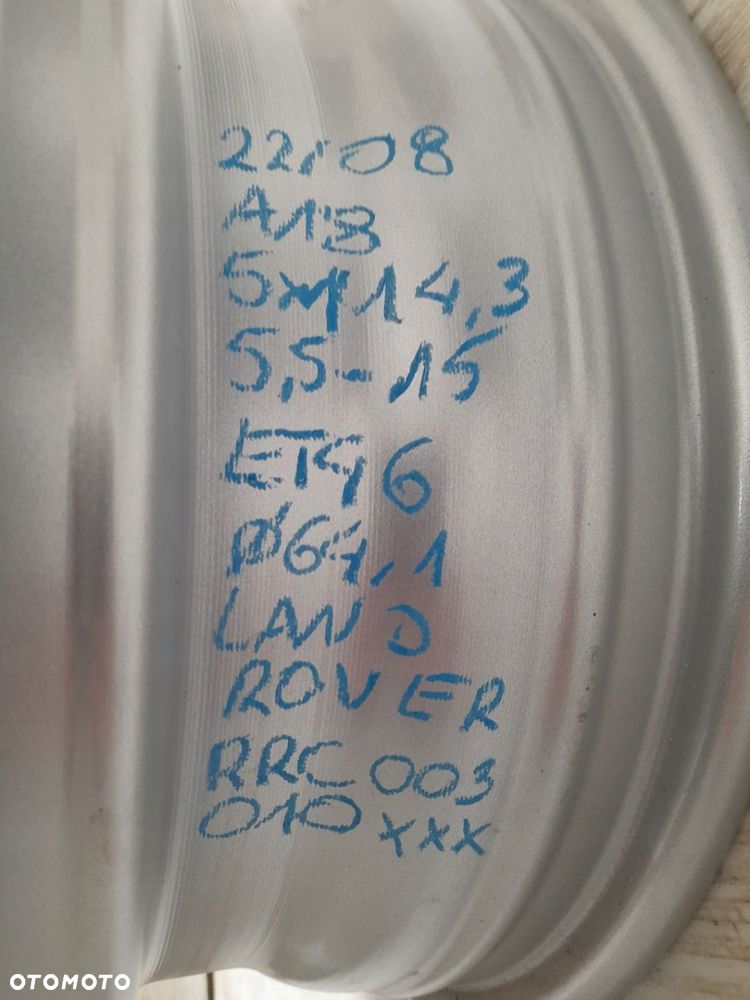 22/08
A13
5x114,3
5,5-15
ET46
Ø64,1
LAND
ROVER
RRC003
010xxx
OTOMOTO